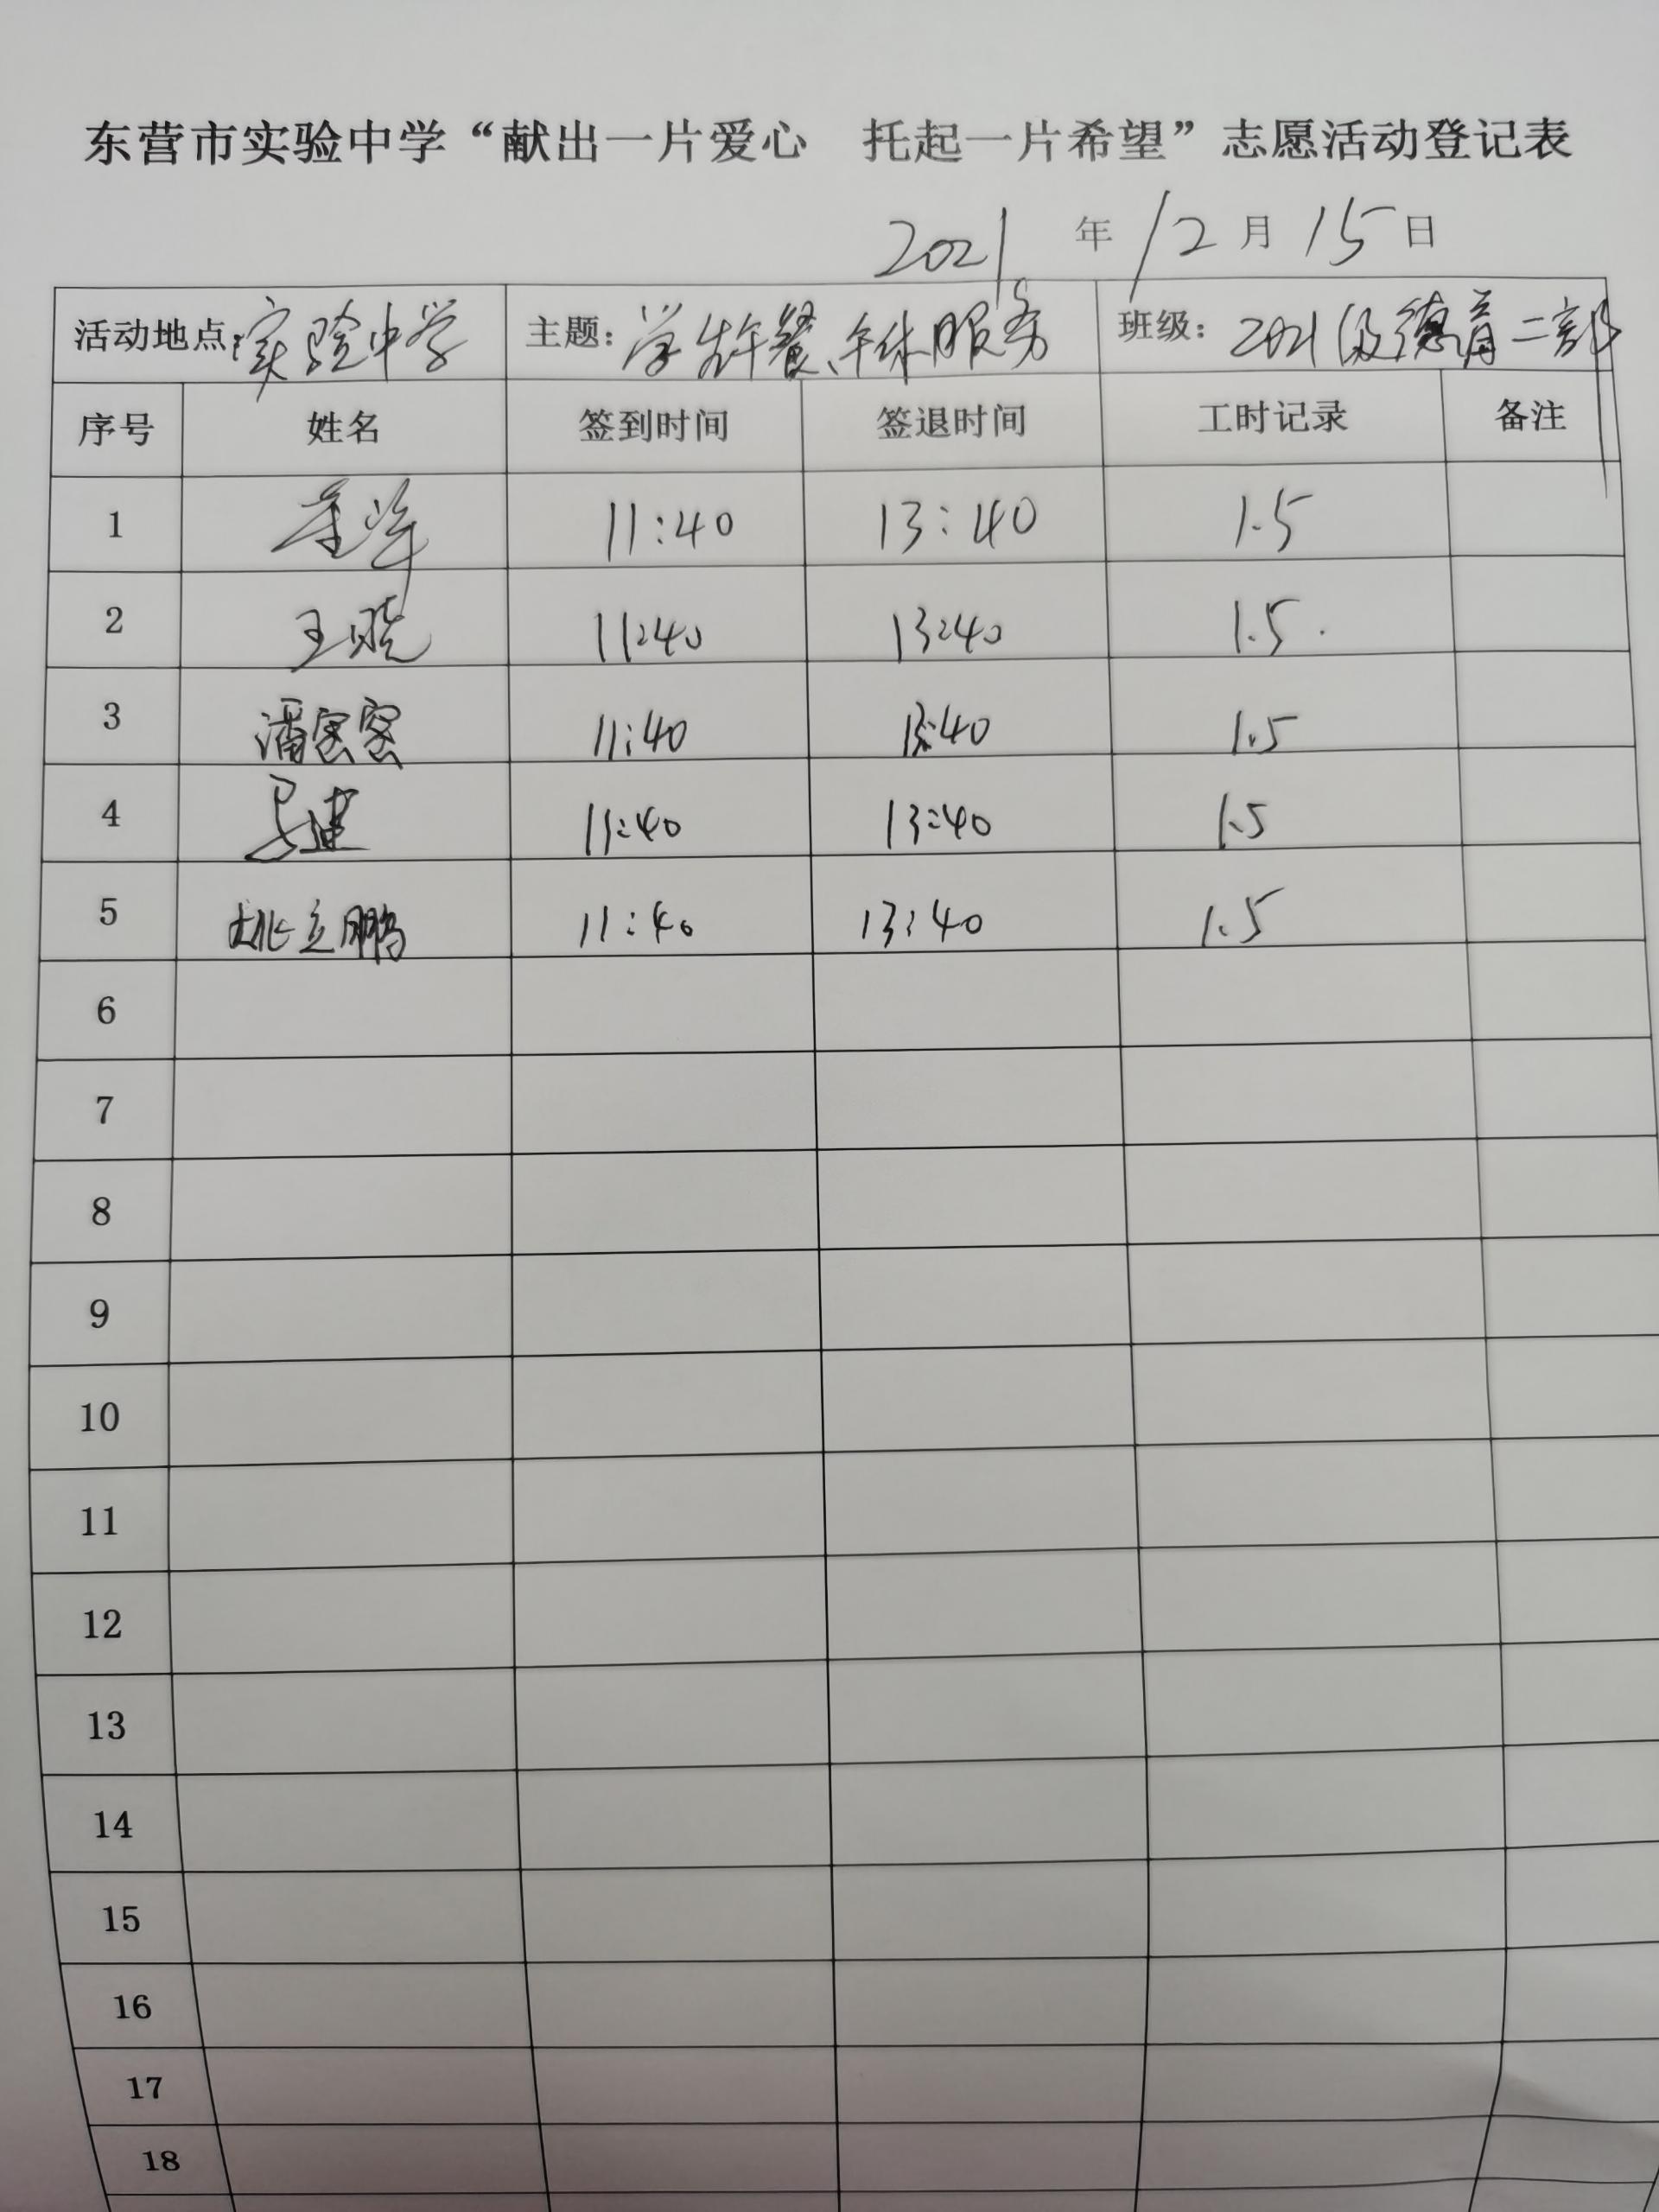 东营市实验中学“献出一片爱心 托起一片希望”志愿活动登记表
2021 年 12 月 15 日
活动地点:实验中学 主题:学生午餐、午休服务 班级:2021级德育二部
序号 姓名 签到时间 签退时间 工时记录 备注
1 11:40 13:40 1.5
2 王晓 11:40 13:40 1.5
3 潘密密 11:40 13:40 1.5
4 11:40 13:40 1.5
5 姚立鹏 11:40 13:40 1.5
6
7
8
9
10
11
12
13
14
15
16
17
18